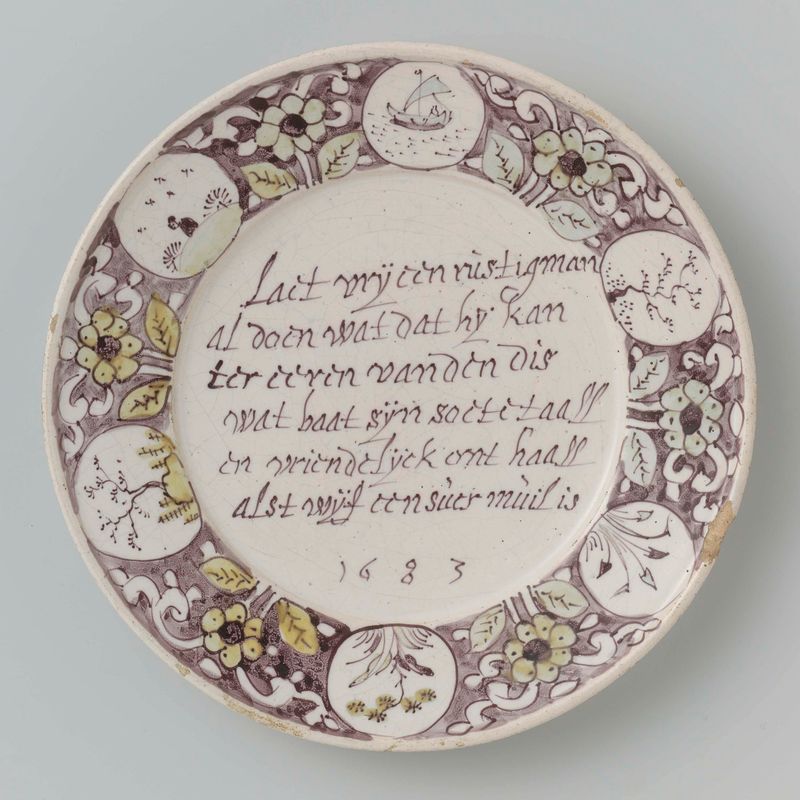 Laet vrij een rustig man
al doen wat dat hij kan
ter eeren van den dis
wat baat sijn soete taall
en vriendelijck ont haall
alst wijf een suer muil is
1683